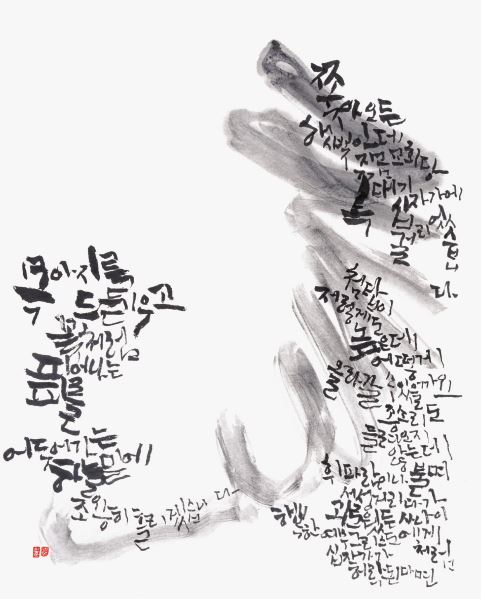 쫓아오든
햇빛인데
지금 교회당
꼭대기
십자가에
걸리었습니다.
첨탑이
저렇게도
높은데
어떻게
올라갈 수 있을까요
종소리도
들려오지
않는데
휘파람이나 불며
서성거리다가
괴로웠든 사나이
행복한 예수그리스도에게 처럼
십자가가
허락된다면
모가지를
드리우고
꽃처럼
피어나는
피를
어두어가는
하늘 밑에
조용히 흘리겠습니다.